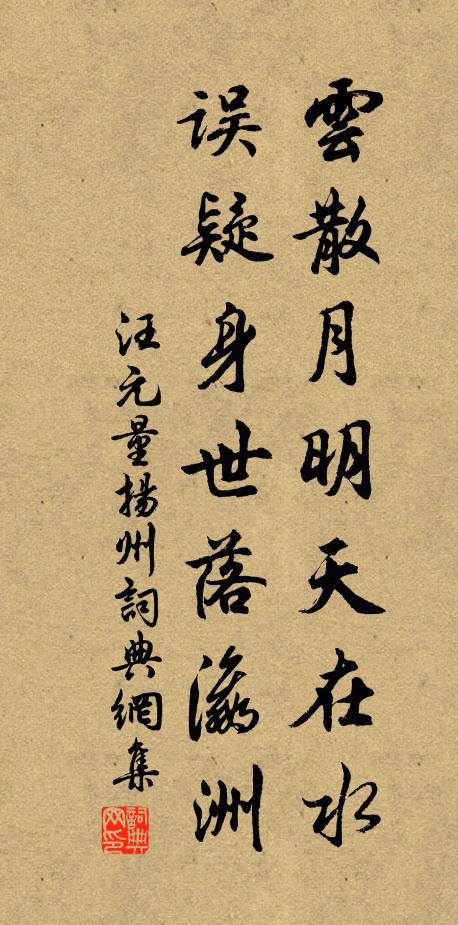 雲散月明天在水
误疑身世落瀛洲
汪元量揚州詞典網集
詞典网印